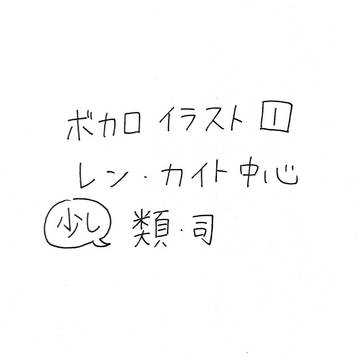 ボカロ イラスト 1
レン・カイト中心
少し 類・司